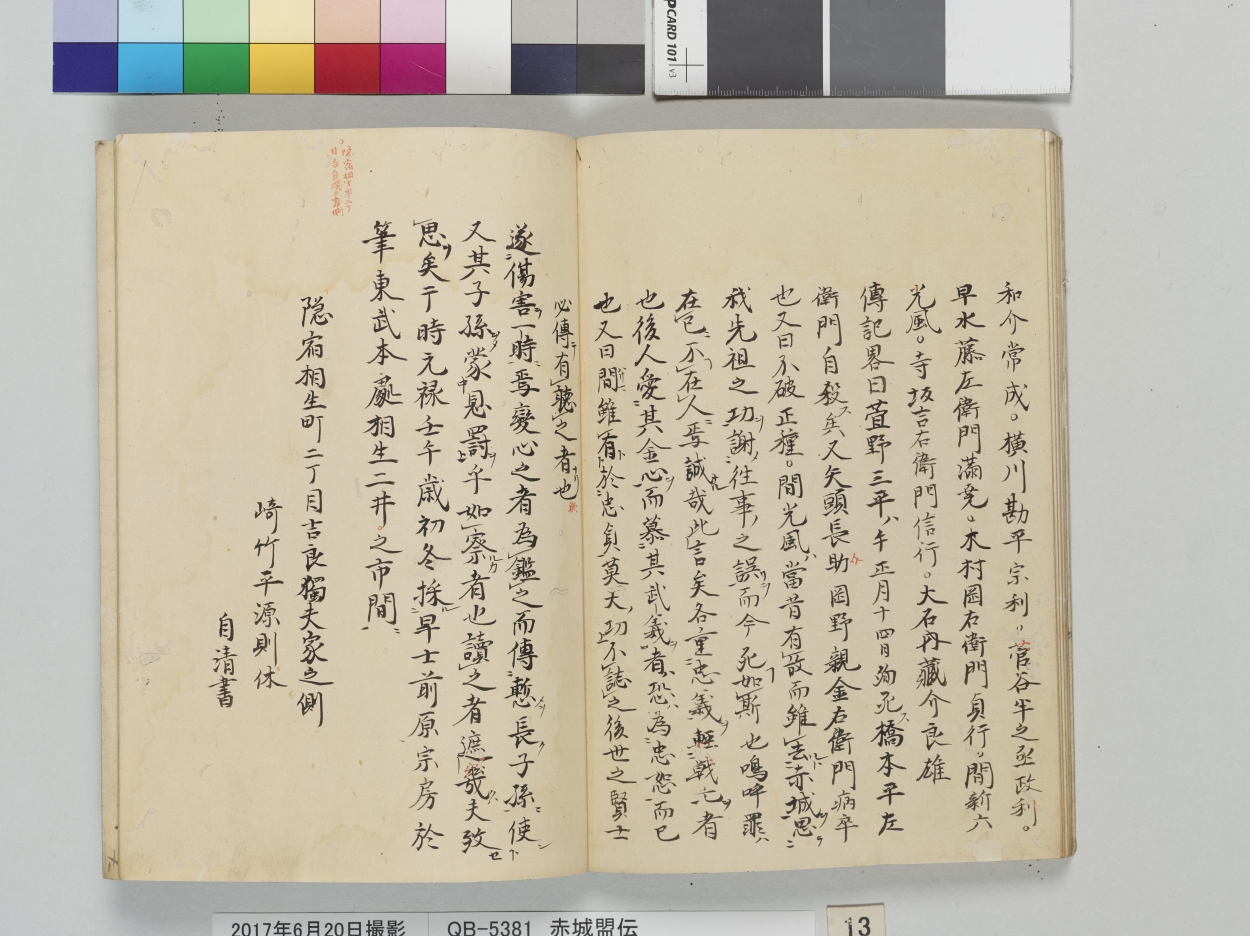 和介常成。横川勘平宗利。菅谷半之丞政利。
早水藤左衛門満尭。木村岡右衛門貞行。間新六
光風。寺坂吉右衛門信行。大石内藏介良雄
傳記畧曰萱野三平ハ午正月十四日殉死ス橋本平左
衛門自殺ス矣又矢頭長助 岡野親金右衛門病卒
也又曰不破正種。間光風ハ當昔有故而雖去赤城思
我先祖之功謝往事之誤而今死如斯也嗚呼罪ハ
在己不在人焉誠哉此言矣各重忠義軽戦亡者
也後人愛其金心而慕其武義者恐ハ為忠恕而已
也又曰間雖有於忠貞莫大功不誌之後世之賢士
必傳有聴之者也
遂傷害一時焉變心之者為鑑之而傳慙長子孫使
又其子孫蒙恩罰乎如察者也讀之者遮幾夫致
思矣于時元禄壬午歳初冬採早士前原宗房於
筆東武本處相生二井。之市間
隠宿相生町二丁目吉良獨夫家之側
崎竹平源則休
自清書
隠宿相生町二丁
目吉良獨夫家側
CARD 101
V3
2017年6月20日撮影
QB-5381 赤城盟伝
13